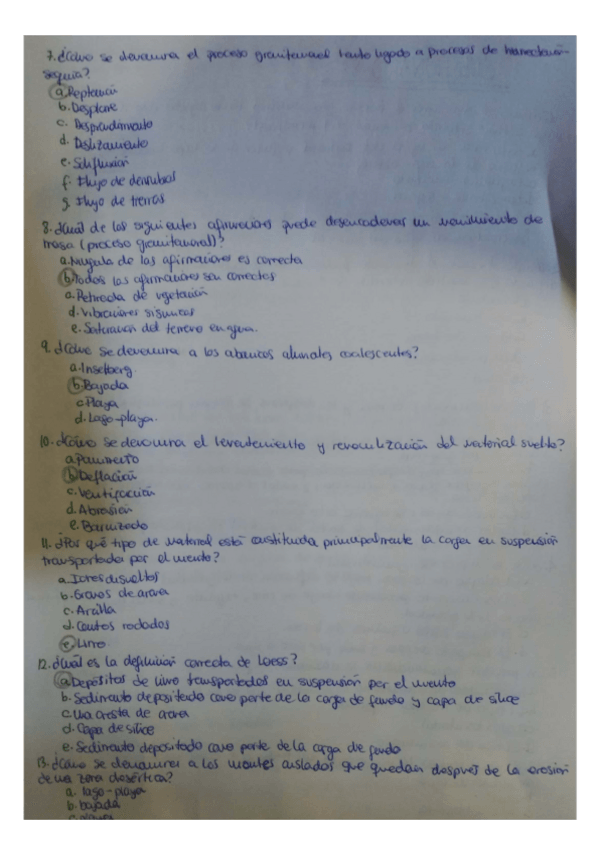 7. ¿Cómo se denomina el proceso gravitacional lento ligado a procesos de humectación-
sequía?
a. Reptación
b. Desplome
c. Desprendimiento
d. Deslizamiento
e. Solifluxión
f. Flujo de derrubios
g. Flujo de tierras
8. ¿Cuál de las siguientes afirmaciones puede desencadenar un movimiento de
masa (proceso gravitacional)?
a. Ninguna de las afirmaciones es correcta
b. Todas las afirmaciones son correctas
a. Retirada de vegetación
d. Vibraciones sísmicas
e. Saturación del terreno en agua.
9. ¿Cómo se denomina a los abanicos aluviales coalescentes?
a. Inselberg
b. Bajada
c. Playa
d. Lago-playa.
10. ¿Cómo se denomina el levantamiento y removilización del material suelto?
a. Pavimento
b. Deflación
c. Ventifacción
d. Abrasión
e. Barnizado
11. ¿Por qué tipo de material está constituida principalmente la carga en suspensión
transportada por el viento?
a. Iones disueltos
b. Granos de arena
c. Arcilla
d. Cantos rodados
e. Limo
12. ¿Cuál es la definición correcta de Loess?
a. Depósitos de limo transportados en suspensión por el viento
b. Sedimento depositado como parte de la carga de fondo y capa de sílice
c. Una cresta de arena
d. Capa de sílice
e. Sedimento depositado como parte de la carga de fondo
13. ¿Cómo se denomina a los montes aislados que quedan después de la erosión
de una zona desértica?
a. lago-playa
b. bajada
c. playa